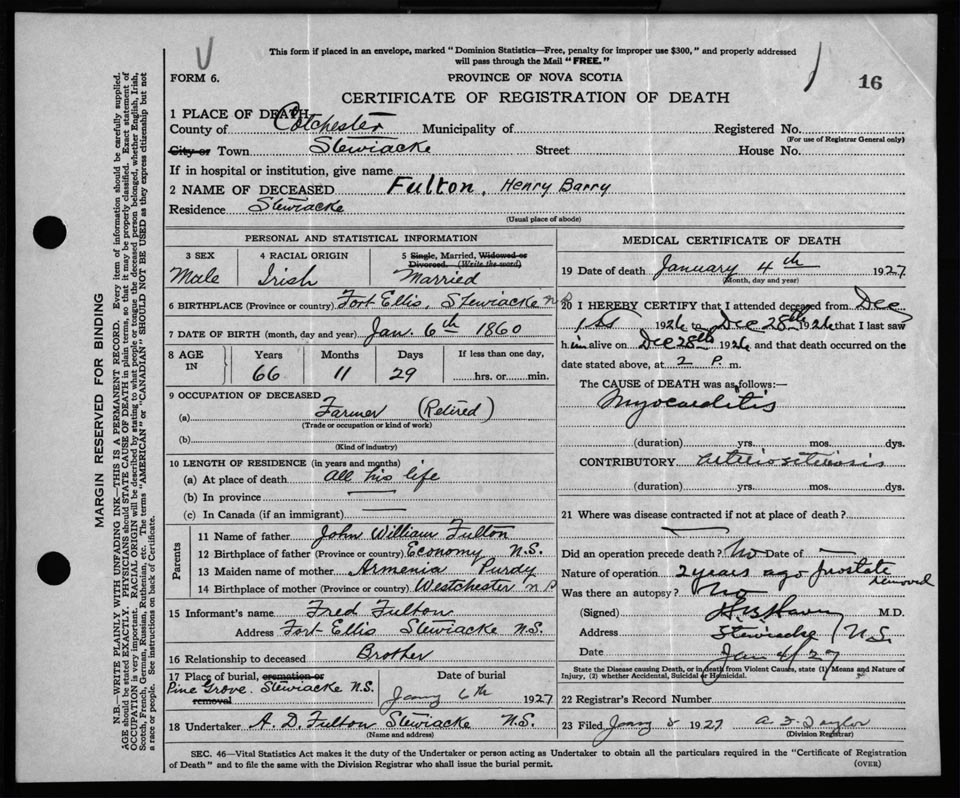 This form if placed in an envelope, marked "Dominion Statistics—Free, penalty for improper use $300," and properly addressed
will pass through the Mail "FREE."
FORM 6.
PROVINCE OF NOVA SCOTIA
16
CERTIFICATE OF REGISTRATION OF DEATH
1 PLACE OF DEATH
County of Colchester Municipality of Registered No.
(For use of Registrar General only)
City or Town Stewiacke Street House No.
If in hospital or institution, give name
2 NAME OF DECEASED Fulton, Henry Barry
Residence Stewiacke
(Usual place of abode)
PERSONAL AND STATISTICAL INFORMATION
3 SEX 4 RACIAL ORIGIN 5 Single, Married, Widowed or
Divorced. (Write the word)
Male Irish Married
6 BIRTHPLACE (Province or country) Fort Ellis, Stewiacke
7 DATE OF BIRTH (month, day and year) Jan. 6th 1860
8 AGE IN Years Months Days If less than one day,
66 11 29 hrs. or min.
9 OCCUPATION OF DECEASED
(a) Farmer (Retired)
(Trade or occupation or kind of work)
(b)
(Kind of industry)
10 LENGTH OF RESIDENCE (in years and months)
(a) At place of death all his life
(b) In province
(c) In Canada (if an immigrant)
Parents
11 Name of father John William Fulton
12 Birthplace of father (Province or country) Economy N.S.
13 Maiden name of mother Armenia Purdy
14 Birthplace of mother (Province or country) Westchester
15 Informant's name Fred Fulton
Address Fort Ellis Stewiacke N.S.
16 Relationship to deceased Brother
17 Place of burial, cremation or
removal
Date of burial
Pine Grove. Stewiacke N.S.
Jany 6th 1927
18 Undertaker A. D. Fulton Stewiacke N.S.
(Name and address)
MEDICAL CERTIFICATE OF DEATH
19 Date of death January 4th 1927
(Month, day and year)
20 I HEREBY CERTIFY that I attended deceased from Dec
1st 1926 to Dec 28th 1926 that I last saw
him alive on Dec 28th 1926 and that death occurred on the
date stated above, at 2 P. m.
The CAUSE OF DEATH was as follows:—
Myocarditis
(duration) yrs. mos. dys.
CONTRIBUTORY Arteriosclerosis
(duration) yrs. mos. dys.
21 Where was disease contracted if not at place of death?
Did an operation precede death? No Date of
Nature of operation 2 years ago prostate
removed
Was there an autopsy? No
(Signed) M.D.
Address Stewiacke N.S.
Date Jan 4/27
State the Disease causing Death, or in death from Violent Causes, state (1) Means and Nature of
Injury, (2) whether Accidental, Suicidal or Homicidal.
22 Registrar's Record Number
23 Filed Jany 1927 Taylor
(Division Registrar)
SEC. 46—Vital Statistics Act makes it the duty of the Undertaker or person acting as Undertaker to obtain all the particulars required in the "Certificate of Registration
of Death" and to file the same with the Division Registrar who shall issue the burial permit.
(OVER)
MARGIN RESERVED FOR BINDING
N.B.—WRITE PLAINLY WITH UNFADING INK—THIS IS A PERMANENT RECORD. Every item of information should be carefully supplied.
AGE should be stated EXACTLY. PHYSICIANS should STATE CAUSE OF DEATH in plain terms, so that it may be properly classified. Exact statement of
OCCUPATION is very important. RACIAL ORIGIN will be described by stating to what people or tongue the deceased person belonged, whether English, Irish,
Scotch, French, German, Russian, Ruthenian, etc. The terms "AMERICAN" or "CANADIAN" SHOULD NOT BE USED as they express citizenship but not
a race or people. See instructions on back of Certificate.